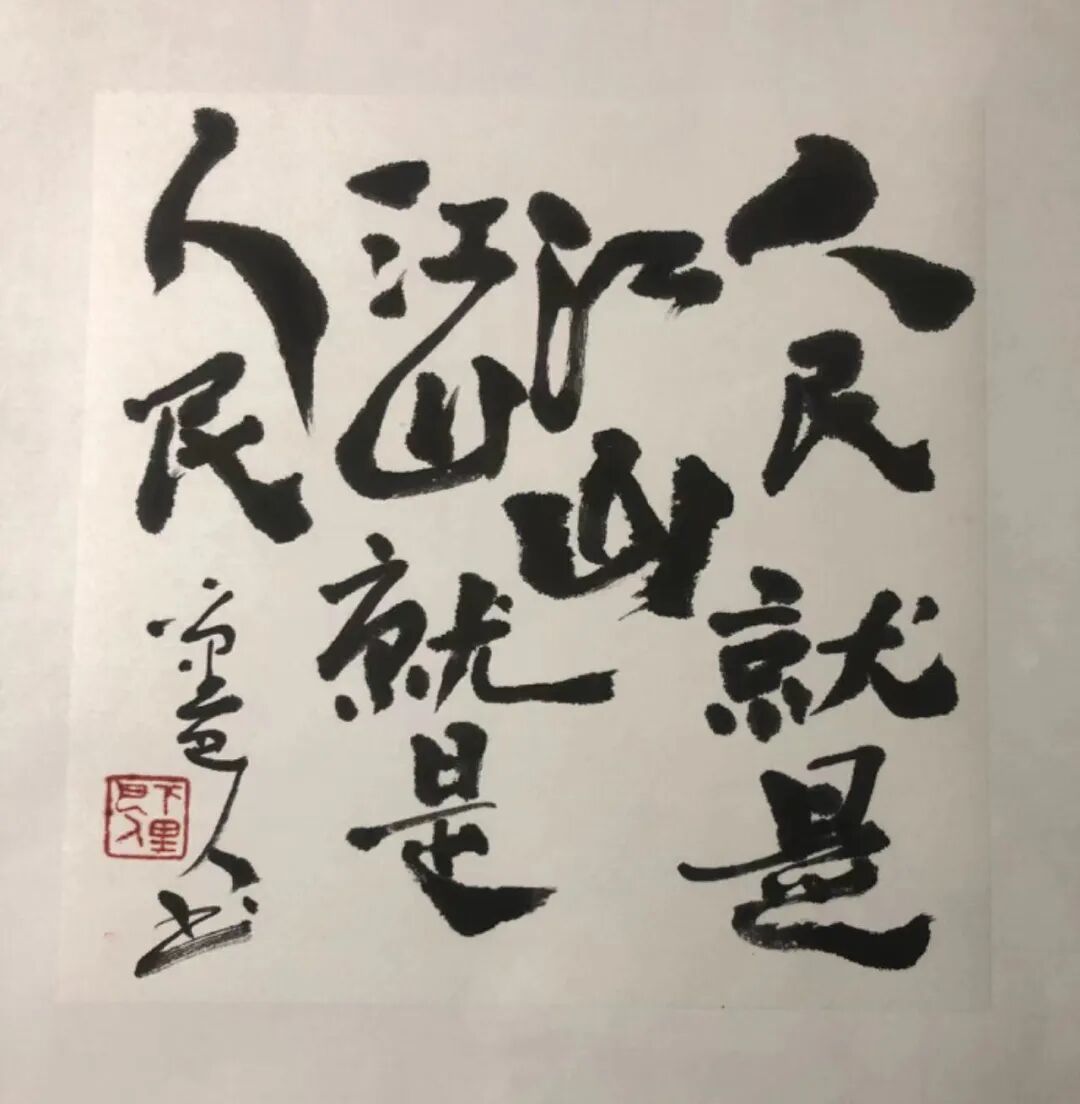 人民就是
江山
江山就是
人民
人书
下里巴人